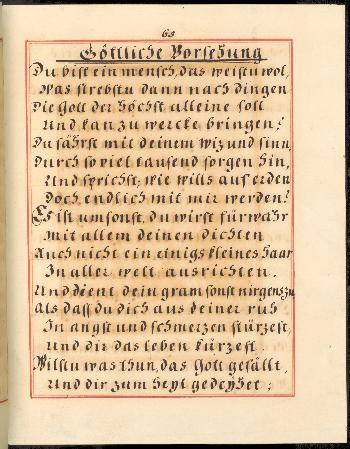 65
Göttliche Vorsehung
Du bist ein mensch, das weistu wol,
Was strebstu dann nach dingen
Die Gott der höchst alleine soll
Und kan zu wercke bringen?
Du fährst mit deinem wiz und sinn,
Durch so viel tausend sorgen hin,
Und sprichst: wie wills auf erden
Doch endlich mit mir werden?
Es ist umsonst, du wirst fürwahr
Mit allem deinen dichten
Auch nicht ein einigs kleines haar
In aller welt ausrichten.
Und dient dein gram sonst nirgens zu
Als dass du dich aus deiner ruh
In angst und schmerzen stürzest,
Und dir das leben kürzest.
Wilstu was thun, das Gott gefällt,
Und dir zum heyl gedeyhet;